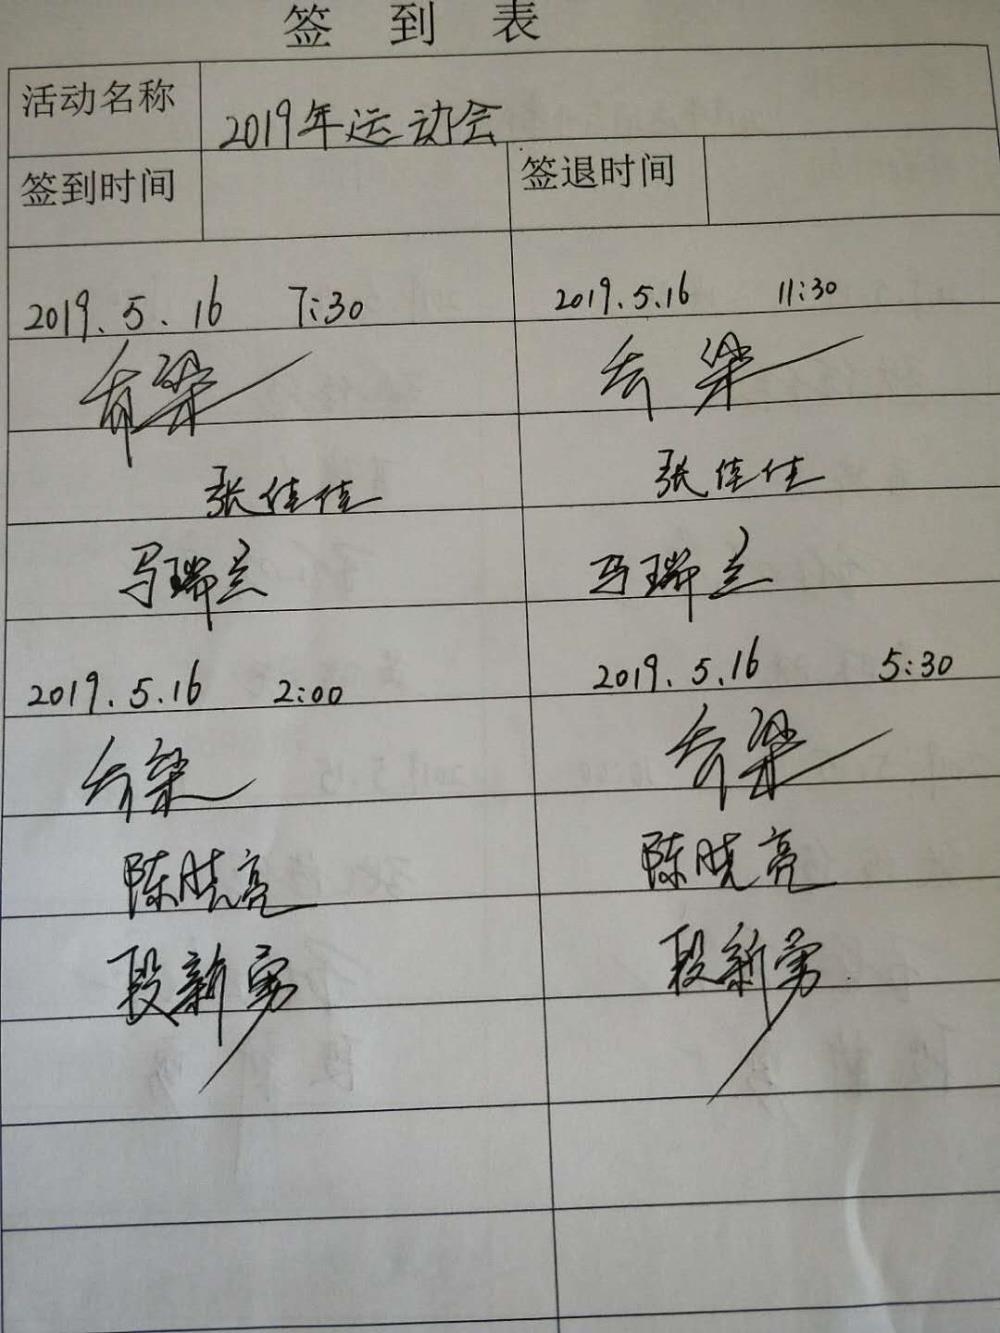 签到表
活动名称 2019年运动会
签到时间 签退时间
2019.5.16 7:30 2019.5.16 11:30
张佳佳 张佳佳
马瑞兰 马瑞兰
2019.5.16 2:00 2019.5.16 5:30
陈晓亮 陈晓亮
段新勇 段新勇